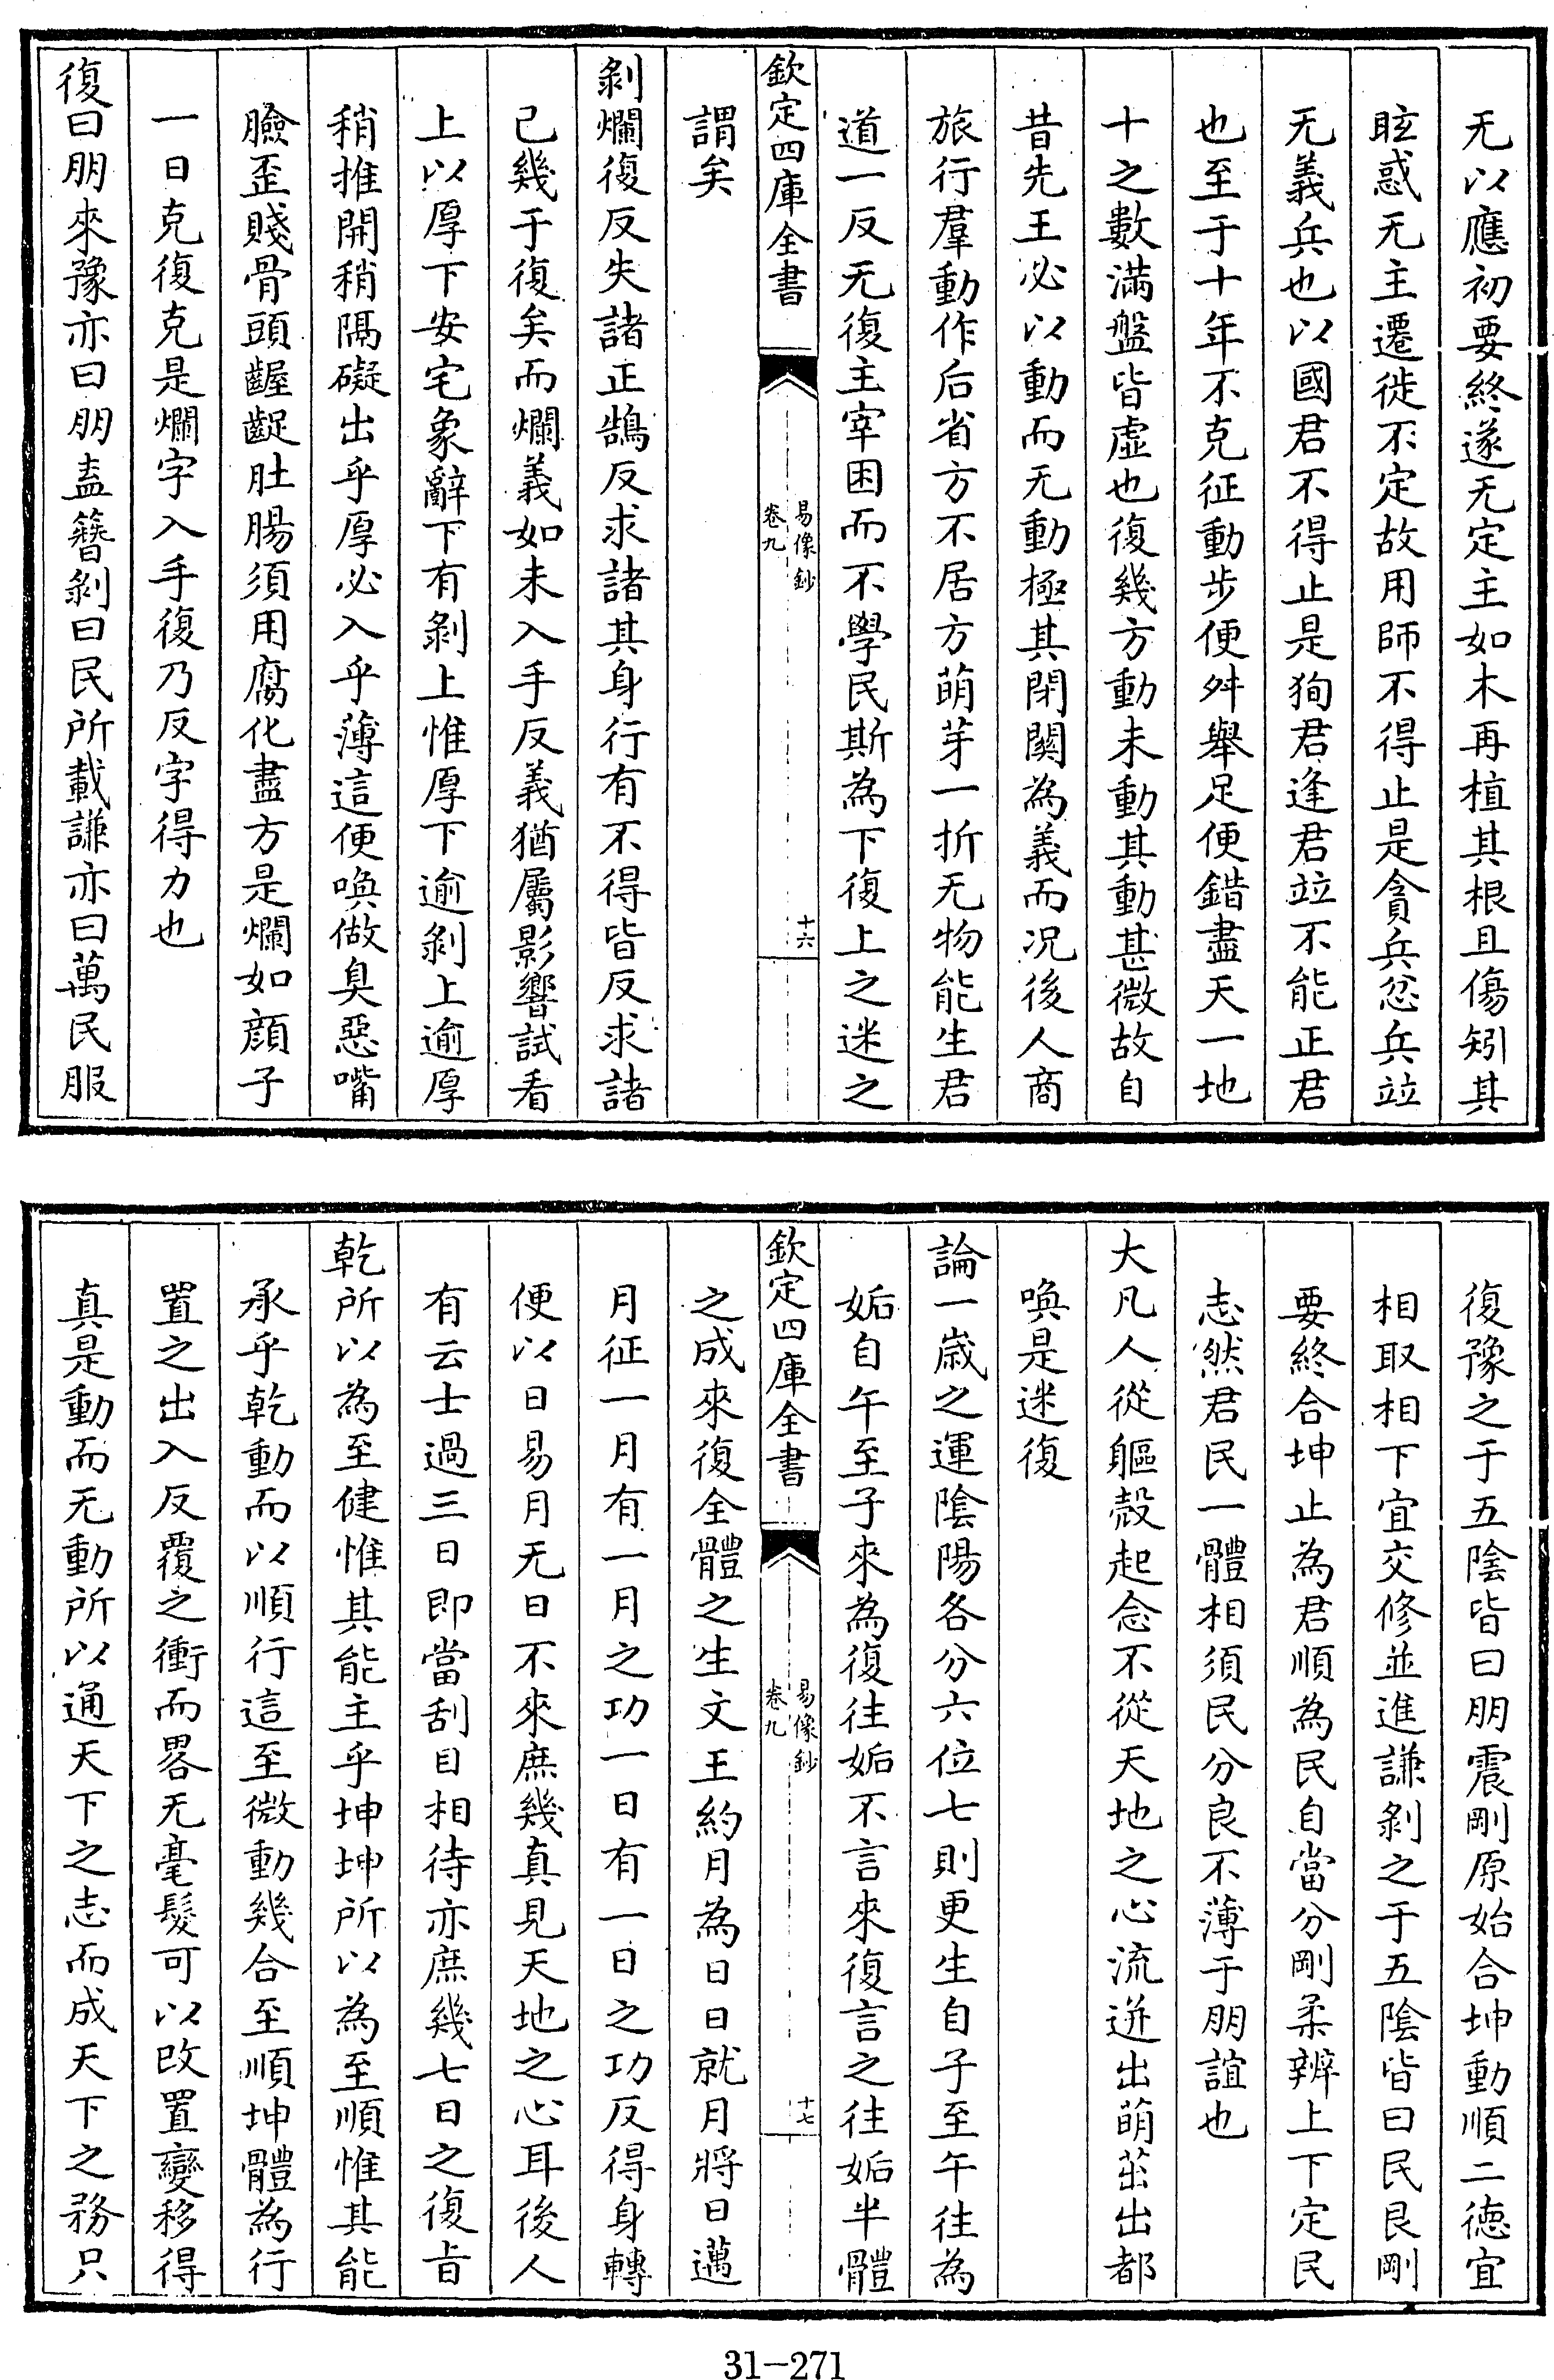 无以應初要終遂无定主如木再植其根且傷矧其
眩惑无主遷徙不定故用師不得止是貪兵忿兵竝
无義兵也以國君不得止是狥君逢君竝不能正君
也至于十年不克征動步便舛舉足便錯盡天一地
十之數滿盤皆虛也復幾方動未動其動甚微故自
昔先王必以動而无動極其閉關為義而况後人商
旅行羣動作后省方不居方萌芽一折无物能生君
道一反无復主宰困而不學民斯為下復上之迷之
欽定四庫全書
易像鈔
卷九
十六
謂矣
剝爛復反失諸正鵠反求諸其身行有不得皆反求諸
己幾于復矣而爛義如未入手反義猶屬影響試看
上以厚下安宅象辭下有剝上惟厚下逾剝上逾厚
稍推開稍隔礙出乎厚必入乎薄這便喚做臭惡嘴
臉歪賤骨頭齷齪肚腸須用腐化盡方是爛如顔子
一日克復克是爛字入手復乃反字得力也
復曰朋來豫亦曰朋盍簪剝曰民所載謙亦曰萬民服
復豫之于五陰皆曰朋震剛原始合坤動順二德宜
相取相下宜交修並進謙剝之于五陰皆曰民艮剛
要終合坤止為君順為民自當分剛柔辨上下定民
志然君民一體相須民分良不薄于朋誼也
大凡人從軀殼起念不從天地之心流迸出萌茁出都
喚是迷復
論一歳之運陰陽各分六位七則更生自子至午往為
姤自午至子來為復往姤不言來復言之往姤半體
欽定四庫全書
易像鈔
卷九
十七
之成來復全體之生文王約月為日日就月將日邁
月征一月有一月之功一日有一日之功反得身轉
便以日易月无日不來庶幾真見天地之心耳後人
有云士過三日即當刮目相待亦庶幾七日之復㫖
乾所以為至健惟其能主乎坤坤所以為至順惟其能
承乎乾動而以順行這至微動幾合至順坤體為行
置之出入反覆之衝而畧无毫髮可以改置變移得
真是動而无動所以通天下之志而成天下之務只
31-271